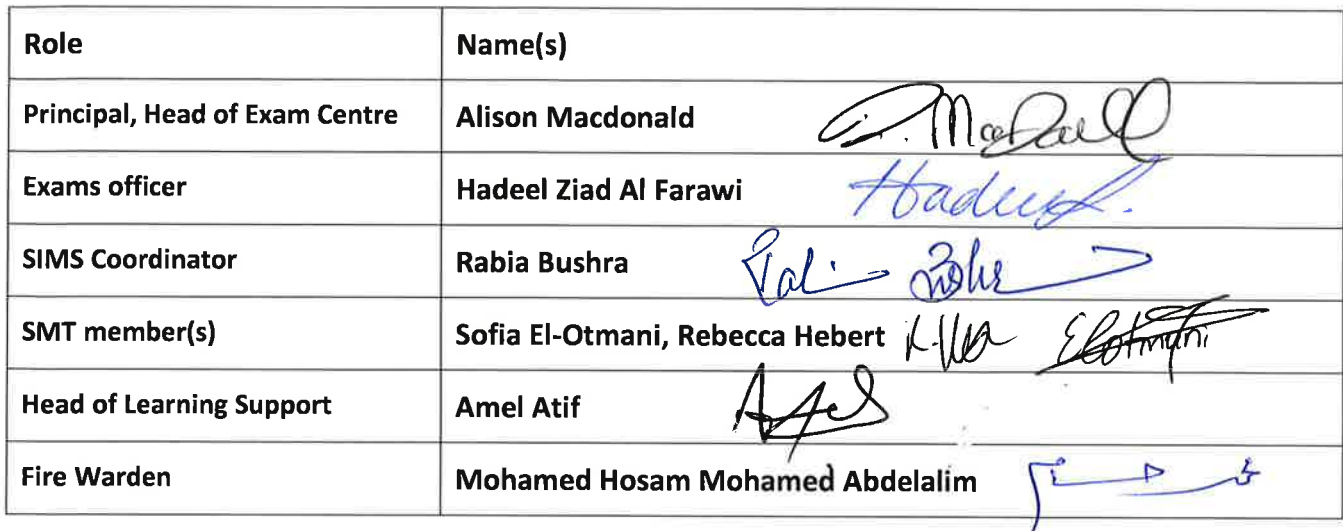 Role Name(s)
Principal, Head of Exam Centre Alison Macdonald
Exams officer Hadeel Ziad Al Farawi
SIMS Coordinator Rabia Bushra
SMT member(s) Sofia El-Otmani, Rebecca Hebert
Head of Learning Support Amel Atif
Fire Warden Mohamed Hosam Mohamed Abdelalim